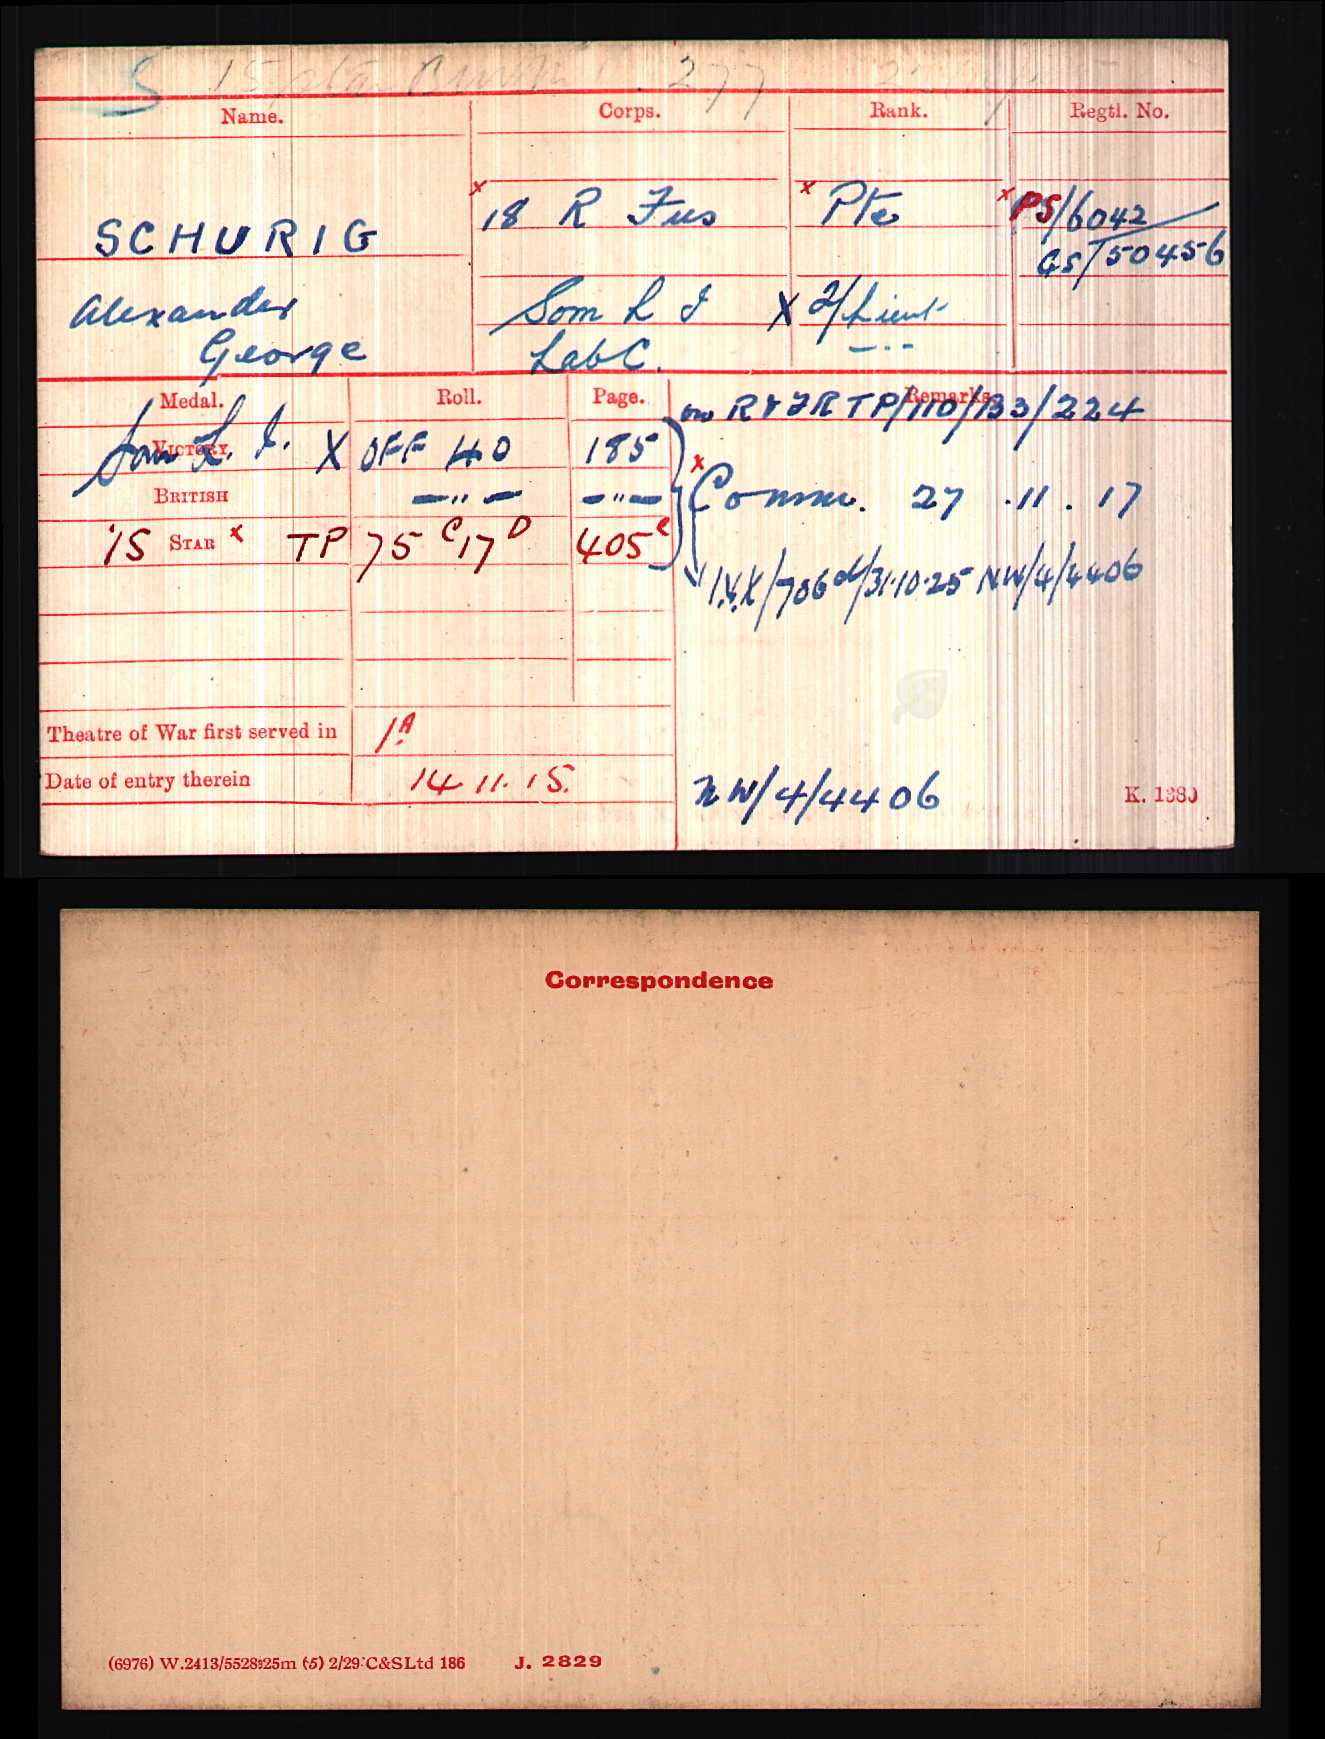 S 277
Name. Corps. Rank. Regtl. No.
x 18 R Fus x Pte x PS/6042
SCHURIG GS/50456
Alexander Som L I X 2/Lieut
George Lab C. — " —
Medal. Roll. Page. Remarks.
on RV & R TP/110/B3/224
Som L. I. VICTORY X OFF 40 185
BRITISH — " — — " — x Comm. 27.11.17
'15 STAR x TP 75 C 17 D 405 C
I.V.X/706 d/31.10.25 NW/4/4406
Theatre of War first served in 1A.
Date of entry therein 14.11.15.
NW/4/4406 K. 1380
Correspondence
(6976) W.2413/5528 25m (5) 2/29 C&S Ltd 186 J. 2829